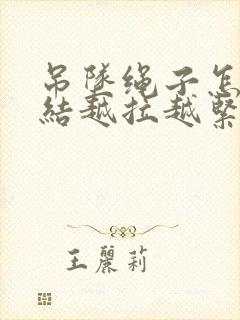 吊墜绳子怎
結越拉越緊
王麗莉